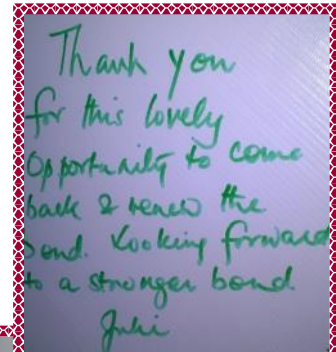 Thank you
for this lovely
Opportunity to come
back & renew the
bond. Looking forward
to a stronger bond
Juhi